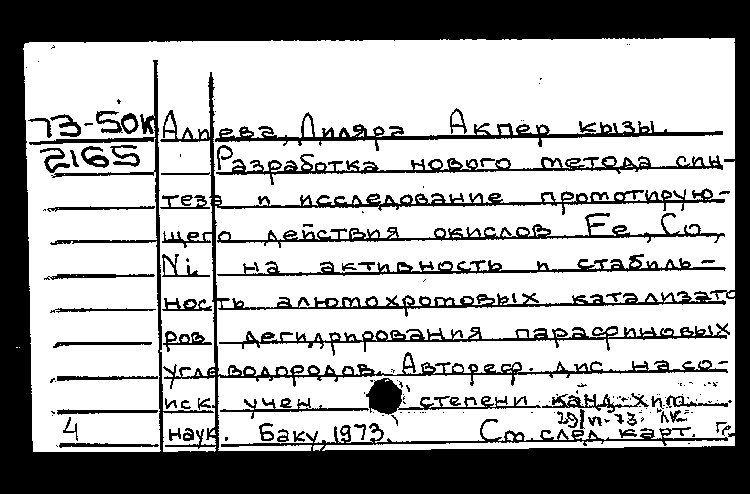 73-50к Алиева, Диляра Акпер кызы.
2165 Разработка нового метода син-
теза и исследование промотирую-
щего действия окислов Fe, Co,
Ni на активность и стабиль-
ность алюмохромовых катализато
ров дегидрирования парафиновых
углеводородов. Автореф. дис. на со-
иск. учен. степени канд. хим.
29/VI-73.
4 наук. Баку, 1973. См. след. карт.